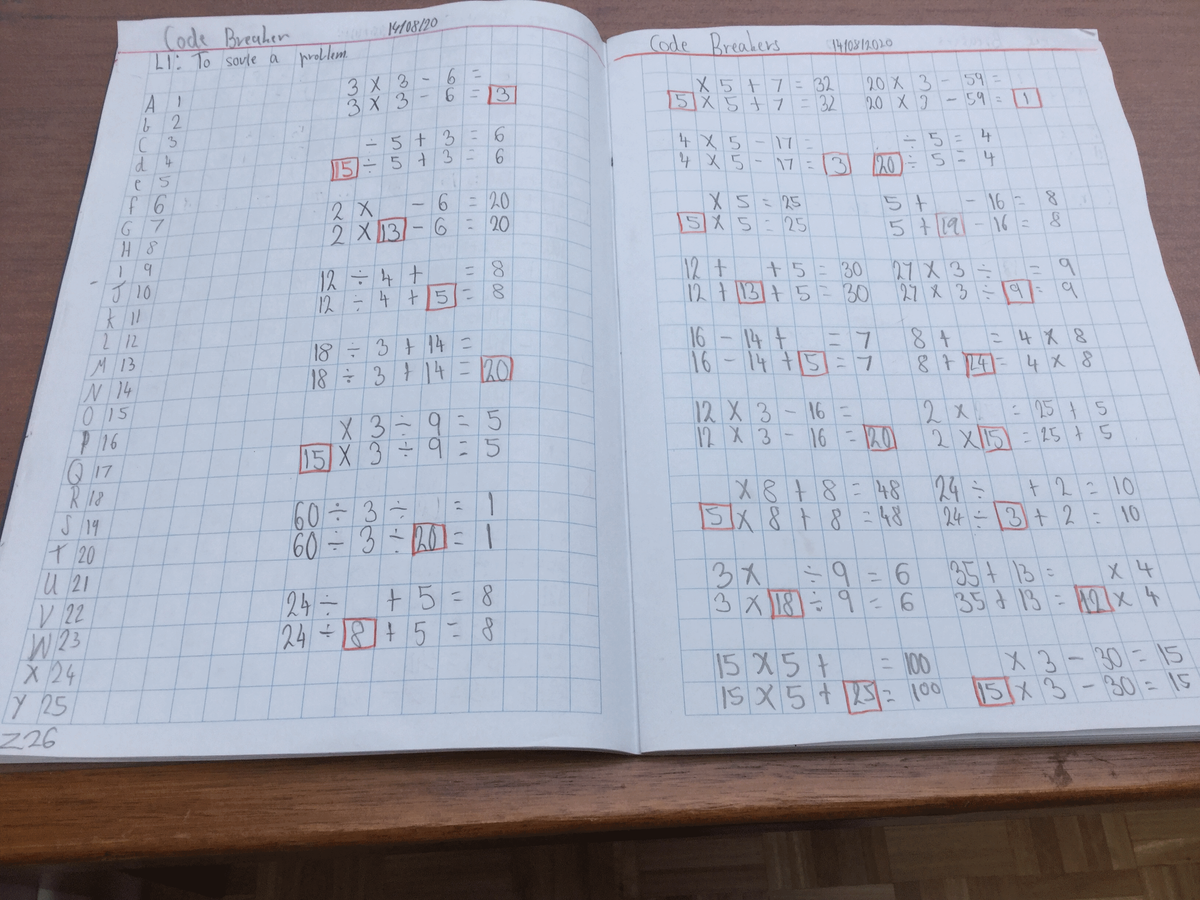 Code Breaker 14/08/20
LI: To sovle a problem
A 1
b 2
C 3
d 4
e 5
f 6
G 7
H 8
I 9
J 10
K 11
L 12
M 13
N 14
O 15
P 16
Q 17
R 18
S 19
T 20
U 21
V 22
W 23
X 24
Y 25
Z 26
3 × 3 - 6 =
3 × 3 - 6 = 3
÷ 5 + 3 = 6
15 ÷ 5 + 3 = 6
2 × - 6 = 20
2 × 13 - 6 = 20
12 ÷ 4 + = 8
12 ÷ 4 + 5 = 8
18 ÷ 3 + 14 =
18 ÷ 3 + 14 = 20
× 3 ÷ 9 = 5
15 × 3 ÷ 9 = 5
60 ÷ 3 ÷ = 1
60 ÷ 3 ÷ 20 = 1
24 ÷ + 5 = 8
24 ÷ 8 + 5 = 8
Code Breakers 14/08/2020
× 5 + 7 = 32
5 × 5 + 7 = 32
4 × 5 - 17 =
4 × 5 - 17 = 3
× 5 = 25
5 × 5 = 25
12 + + 5 = 30
12 + 13 + 5 = 30
16 - 14 + = 7
16 - 14 + 5 = 7
12 × 3 - 16 =
12 × 3 - 16 = 20
× 8 + 8 = 48
5 × 8 + 8 = 48
3 × ÷ 9 = 6
3 × 18 ÷ 9 = 6
15 × 5 + = 100
15 × 5 + 25 = 100
20 × 3 - 59 =
20 × 3 - 59 = 1
÷ 5 = 4
20 ÷ 5 = 4
5 + - 16 = 8
5 + 19 - 16 = 8
27 × 3 ÷ = 9
27 × 3 ÷ 9 = 9
8 + = 4 × 8
8 + 24 = 4 × 8
2 × = 25 + 5
2 × 15 = 25 + 5
24 ÷ + 2 = 10
24 ÷ 3 + 2 = 10
35 + 13 = × 4
35 + 13 = 12 × 4
× 3 - 30 = 15
15 × 3 - 30 = 15